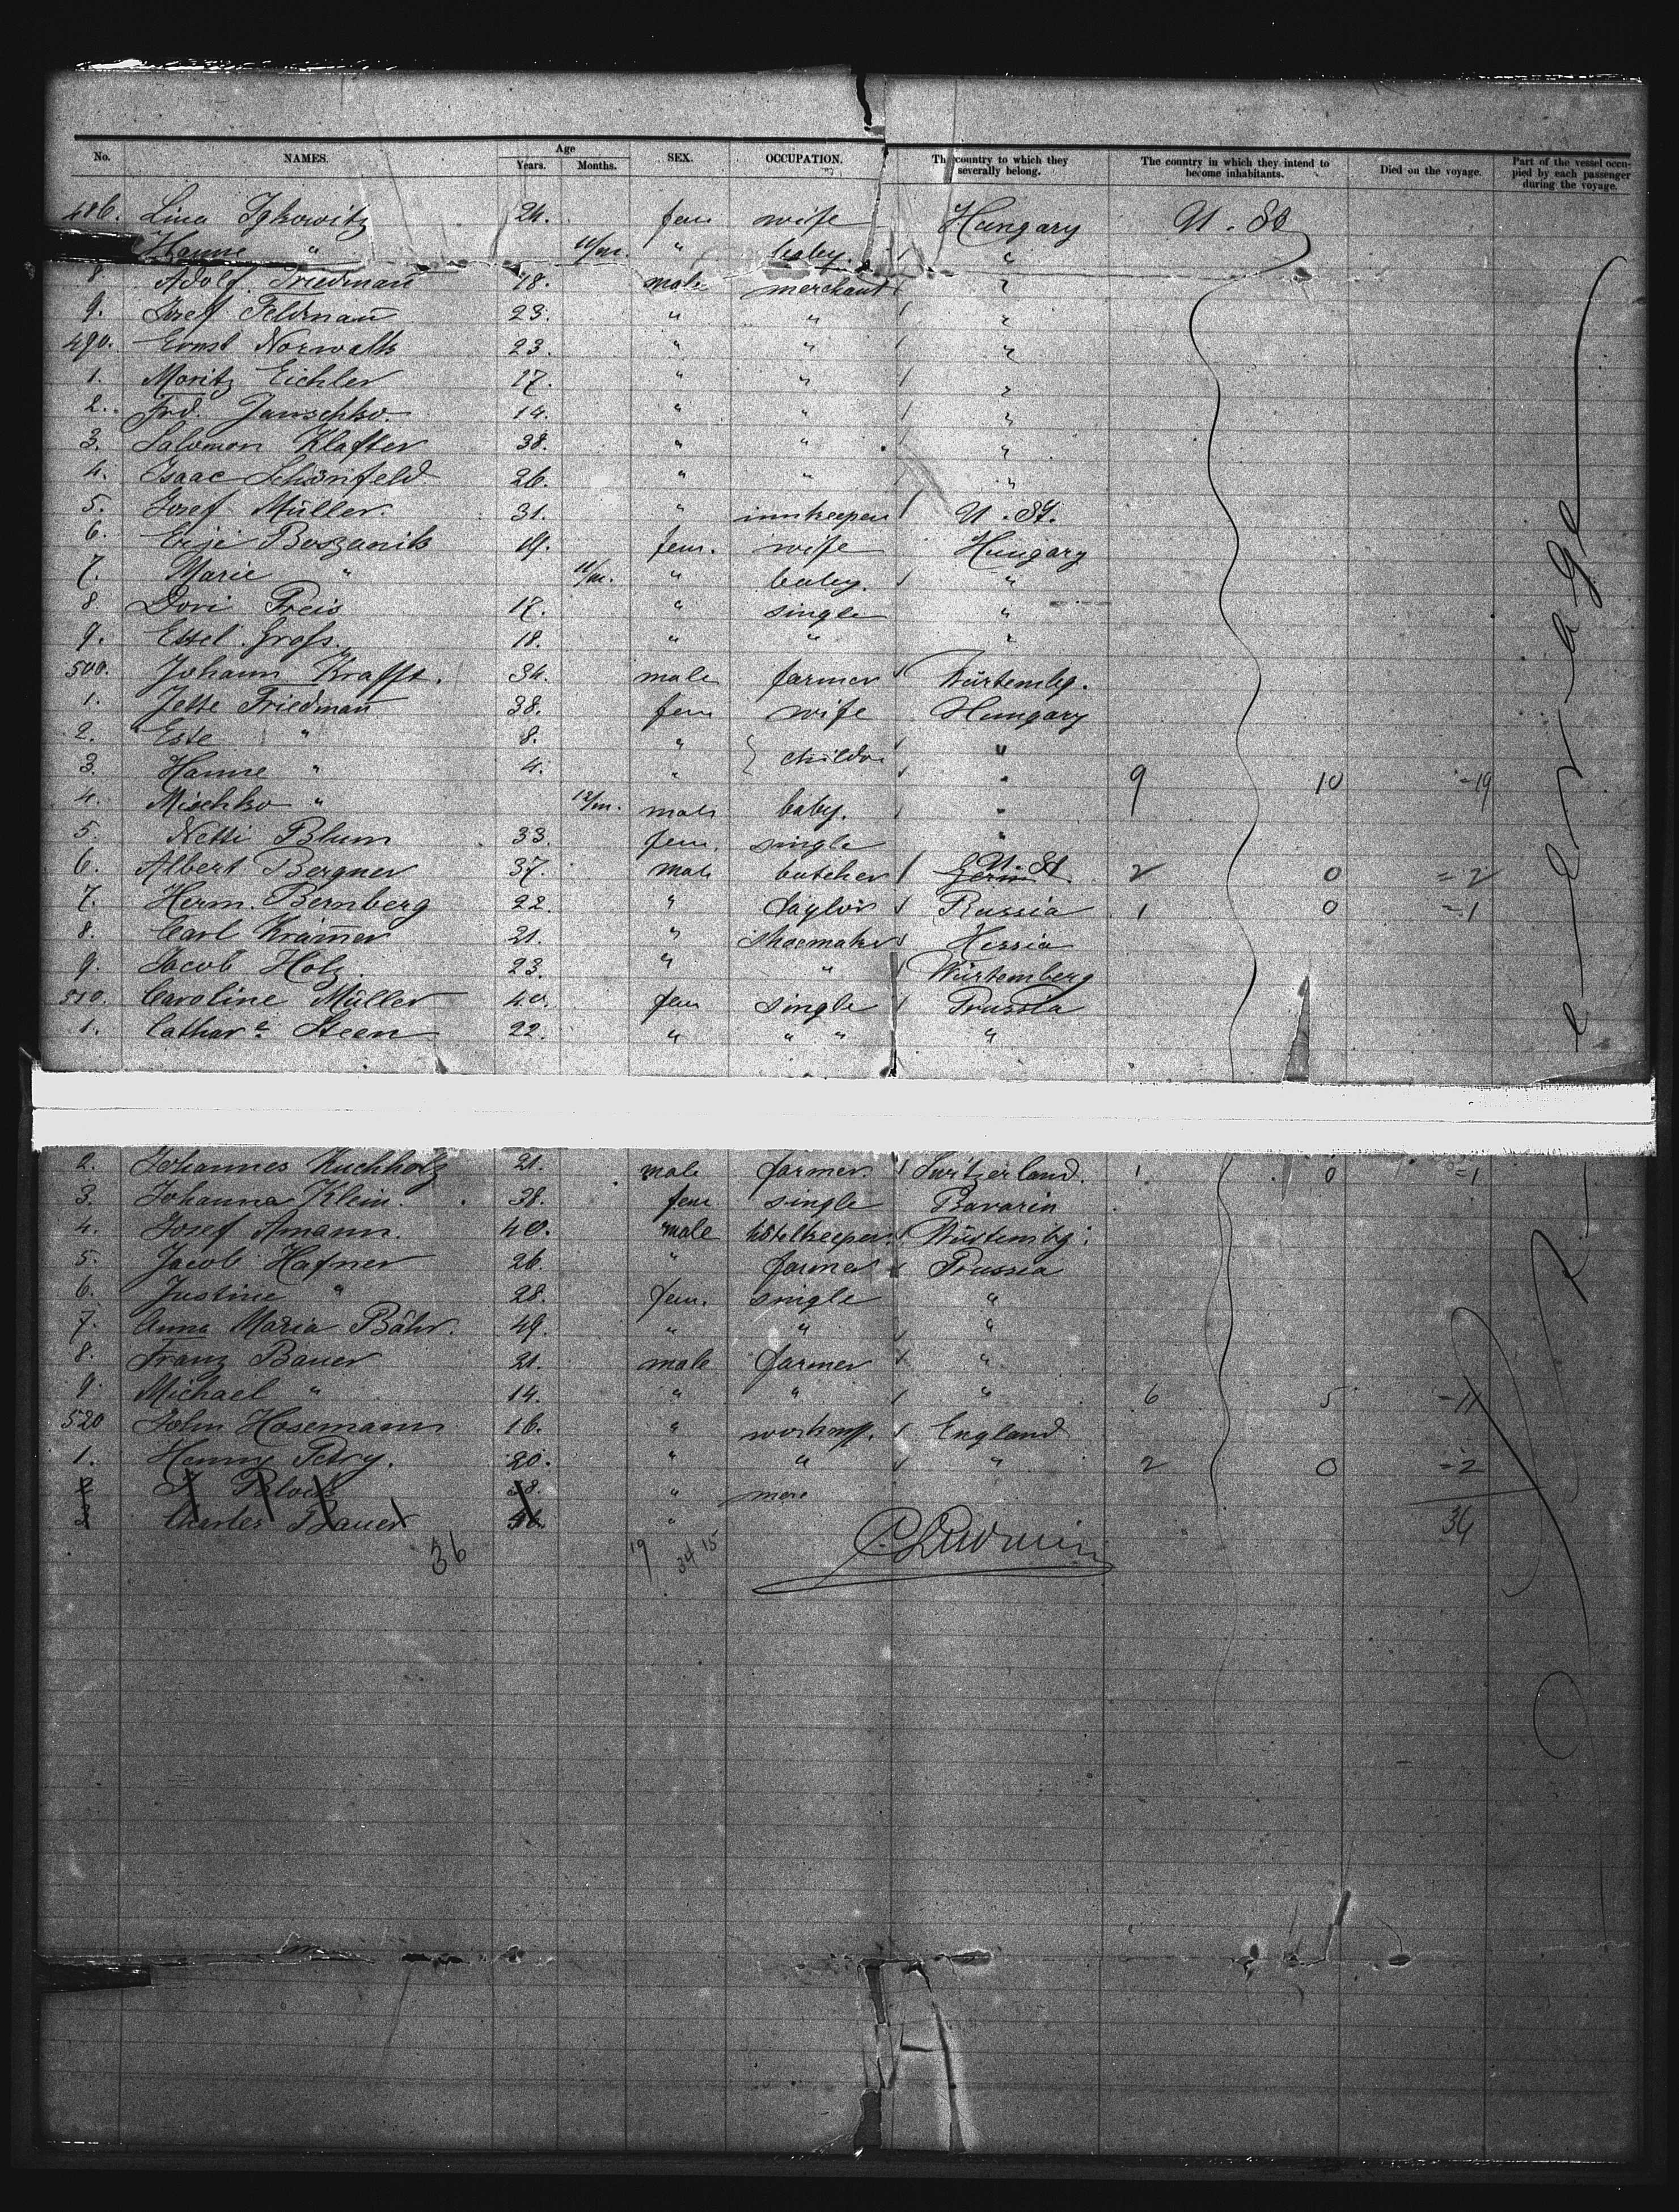 No. NAMES. Age Years. Months. SEX. OCCUPATION. The country to which they severally belong. The country in which they intend to become inhabitants. Died on the voyage. Part of the vessel occupied by each passenger during the voyage.
486. Lina Igkowitz 24. fem wife Hungary U. St
Hanne " 11/m. " baby. "
8 Adolf Friedman̄ 18. male merchant "
9. Josef Feldman̄ 23. " " "
490. Ernst Norwalk 23. " " "
1. Moritz Eichler 17. " " "
2. Frd. Janschko. 14. " " "
3. Salomon Klafter 38. " " "
4. Isaac Schönfeld 26. " " "
5. Josef Müller. 31. " innkeeper U. St.
6. Erje Boszanik 19. fem. wife Hungary
7. Marie " 11/m. " baby. "
8. Dori Preis 17. " single "
9. Ettel Gross. 18. " " "
500. Johann Krafft. 34. male farmer Würtembg.
1. Jette Friedman̄ 38. fem wife Hungary
2. Este " 8. " } childr "
3. Hanne " 4. " " 9 10 =19
4. Mischko " 12/m. male baby. "
5. Netti Blum 33. fem. single "
6. Albert Bergner 37. male butcher U. St Germ 2 0 =2
7. Herm. Bernberg 22. " Taylor Russia 1 0 =1
8. Carl Krämer 21. " shoemaker Hessia
9. Jacob Holz. 23. " " Würtemberg
510. Caroline Müller 40. fem single Prussia
1. Cathar.e Steen 22. " " " "
steerage
2. Johannes Kuchholz 21. male farmer Switzerland. 1 0 =1
3. Johanna Klein. 38. fem single Bavaria
4. Josef Amann. 40. male hotelkeeper Würtembg.
5. Jacob Hafner 26. " farmer Prussia
6. Justine " 28. fem. single "
7. Anna Maria Bähr. 49. " " "
8. Franz Bauer 21. male farmer "
9. Michael " 14. " " " 6 5 =11
520 John Hosemann 16. " England
1. Henny Petry. 20. " " " 2 0 =2
2 Block 38. "
3 Charles Bauer "
36
36 19 34 15